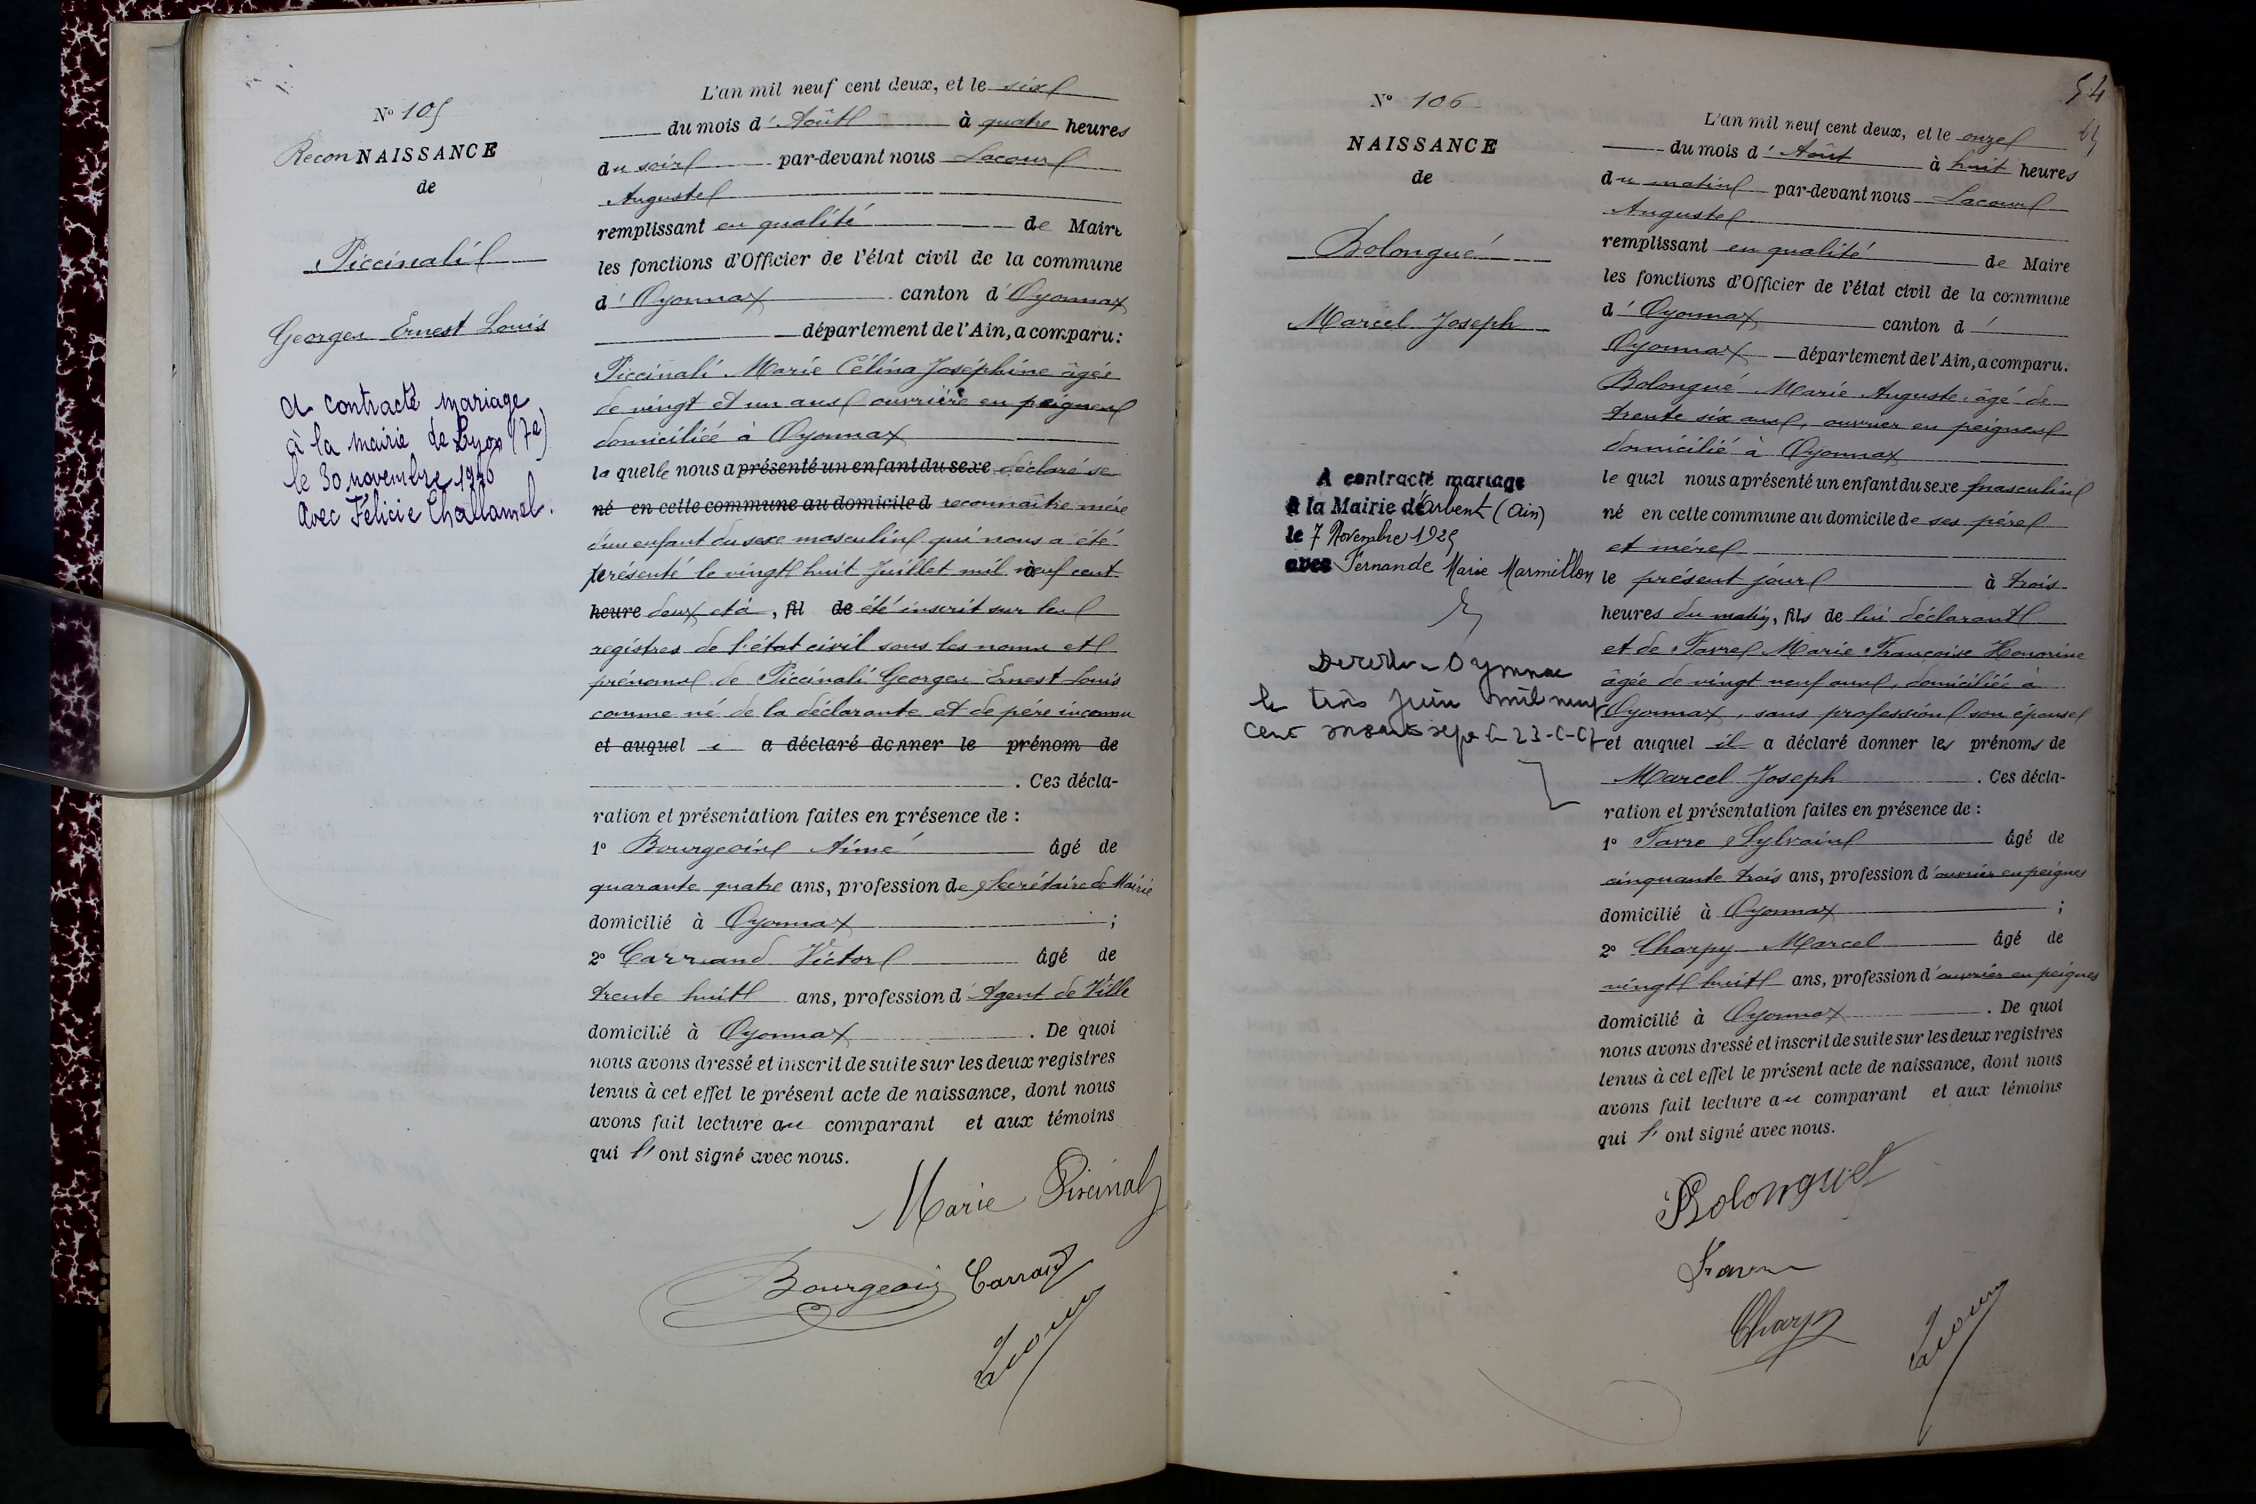 Nº 105
ReconNAISSANCE
de
Piccinali
Georges Ernest Louis
A contracté mariage
à la mairie de Lyon (7e)
le 30 novembre 1920
avec Félicie Challamel.
L'an mil neuf cent deux, et le six
du mois d'Août à quatre heures
du soir par-devant nous Lacour
Auguste
remplissant en qualité de Maire
les fonctions d'Officier de l'état civil de la commune
d'Oyonnax canton d'Oyonnax
département de l'Ain, a comparu:
Piccinali Marie Célina Joséphine âgée
de vingt et un ans ouvrière en peignes
domiciliée à Oyonnax
laquelle nous a présenté un enfant du sexe déclaré se
né en cette commune au domicile d reconnaître mère
d'un enfant du sexe masculin qui nous a été
présenté le vingt huit Juillet mil à neuf cent
heure deux et à, fil de été inscrit sur les
registres de l'état civil sous les noms et
prénoms de Piccinali Georges Ernest Louis
comme né de la déclarante et de père inconnu
et auquel a déclaré donner le prénom de
. Ces décla-
ration et présentation faites en présence de :
1º Bourgeois Aimé âgé de
quarante quatre ans, profession de Secrétaire de Mairie
domicilié à Oyonnax ;
2º Carrand Victor âgé de
trente huit ans, profession d'Agent de Ville
domicilié à Oyonnax . De quoi
nous avons dressé et inscrit de suite sur les deux registres
tenus à cet effet le présent acte de naissance, dont nous
avons fait lecture au comparant et aux témoins
qui l'ont signé avec nous.
Marie Piccinali
Bourgeois Carrand
Lacour
54
Nº 106
NAISSANCE
de
Bolongué
Marcel Joseph
A contracté mariage
à la Mairie d'Arbent (Ain)
le 7 Novembre 1925
avec Fernande Marie Marmillon
Oyonnax
le trois Juin mil neuf
cent
L'an mil neuf cent deux, et le onze
du mois d'Août à huit heures
du matin par-devant nous Lacour
Auguste
remplissant en qualité de Maire
les fonctions d'Officier de l'état civil de la commune
d'Oyonnax canton d'
Oyonnax département de l'Ain, a comparu.
Bolongué Marie Auguste âgé de
trente six ans, ouvrier en peignes
domicilié à Oyonnax
lequel nous a présenté un enfant du sexe masculin
né en cette commune au domicile de ses père
et mère
le présent jour à trois
heures du matin, fils de lui déclarant
et de Favre Marie Françoise Honorine
âgée de vingt neuf ans, domiciliée à
Oyonnax, sans profession son épouse
et auquel il a déclaré donner les prénoms de
Marcel Joseph . Ces décla-
ration et présentation faites en présence de :
1º Favre Sylvain âgé de
cinquante trois ans, profession d'ouvrier en peignes
domicilié à Oyonnax ;
2º Charpy Marcel âgé de
vingt huit ans, profession d'ouvrier en peignes
domicilié à Oyonnax . De quoi
nous avons dressé et inscrit de suite sur les deux registres
tenus à cet effet le présent acte de naissance, dont nous
avons fait lecture au comparant et aux témoins
qui l'ont signé avec nous.
Bolonguet
Favre
Charpy
Lacour